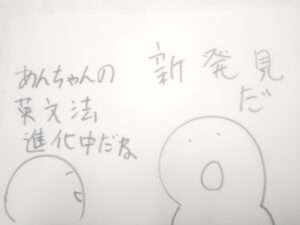 あんちゃんの
英文法
進化中だね
新発見
だ